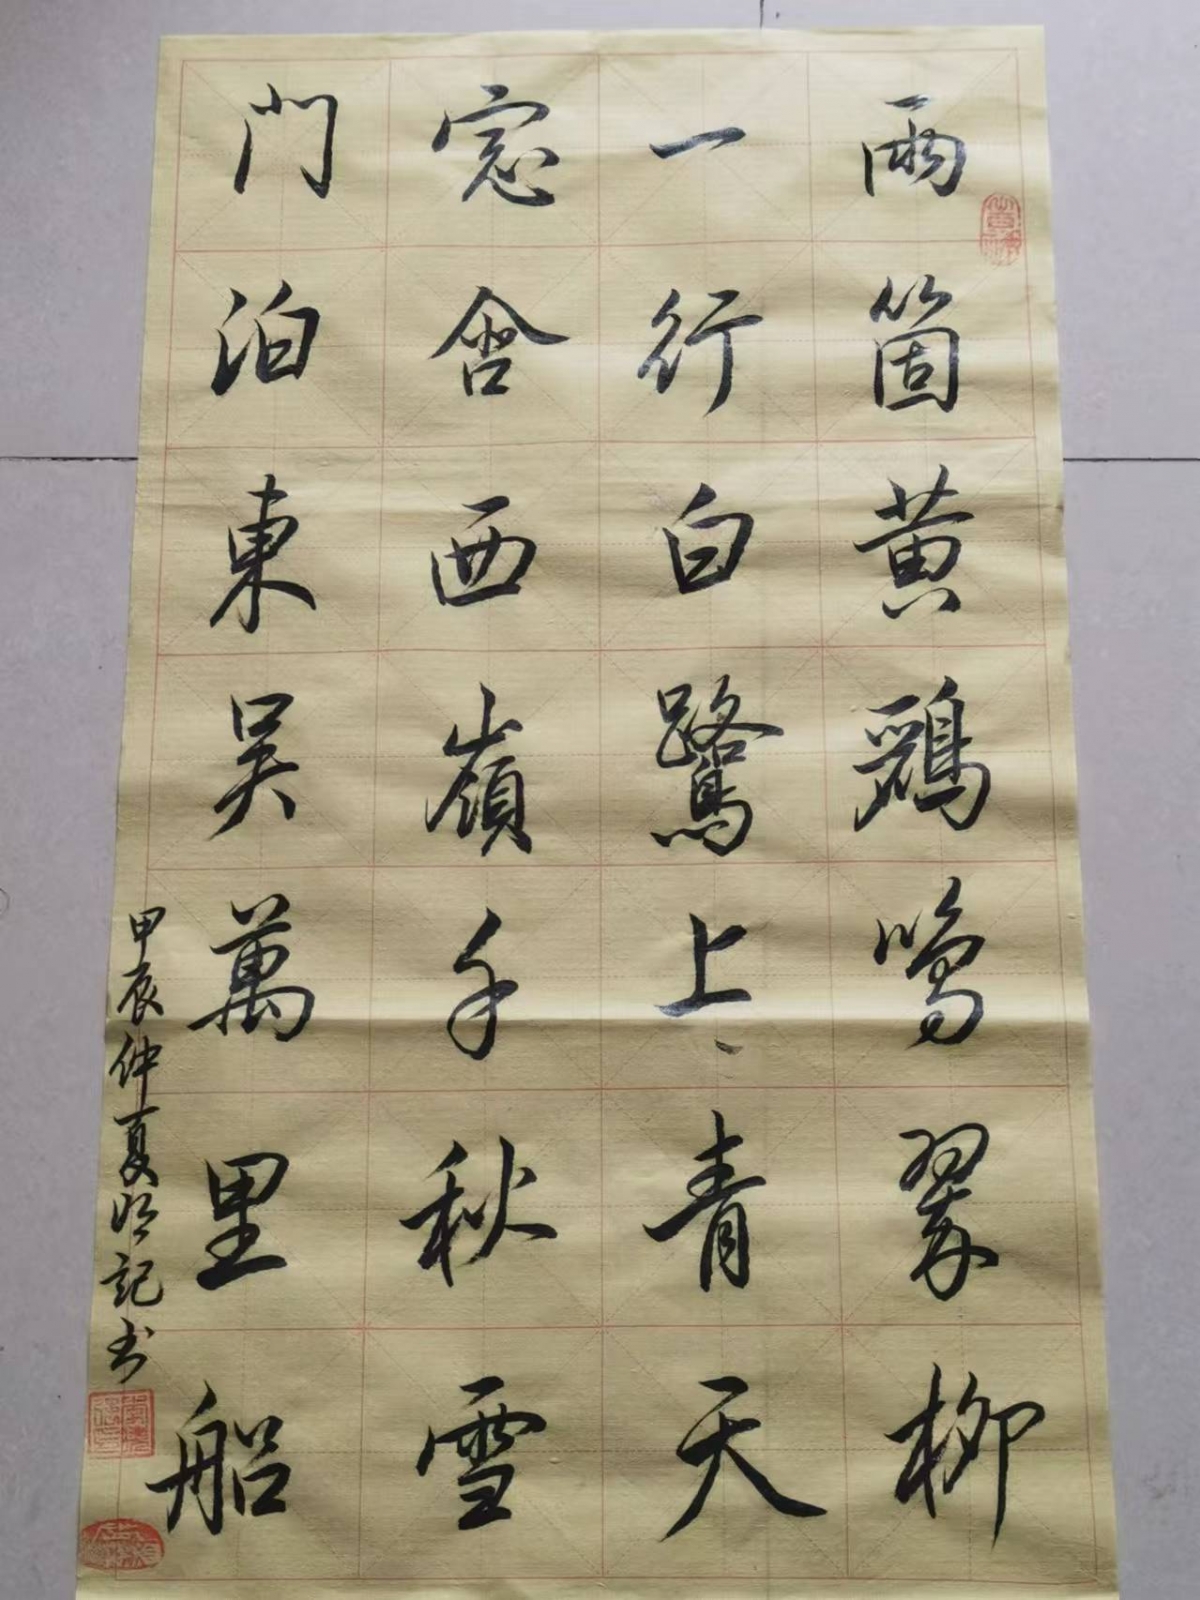 兩箇黄鸝鳴翠柳
一行白鷺上青天
窓含西嶺千秋雪
門泊東吳萬里船
甲辰仲夏
記书